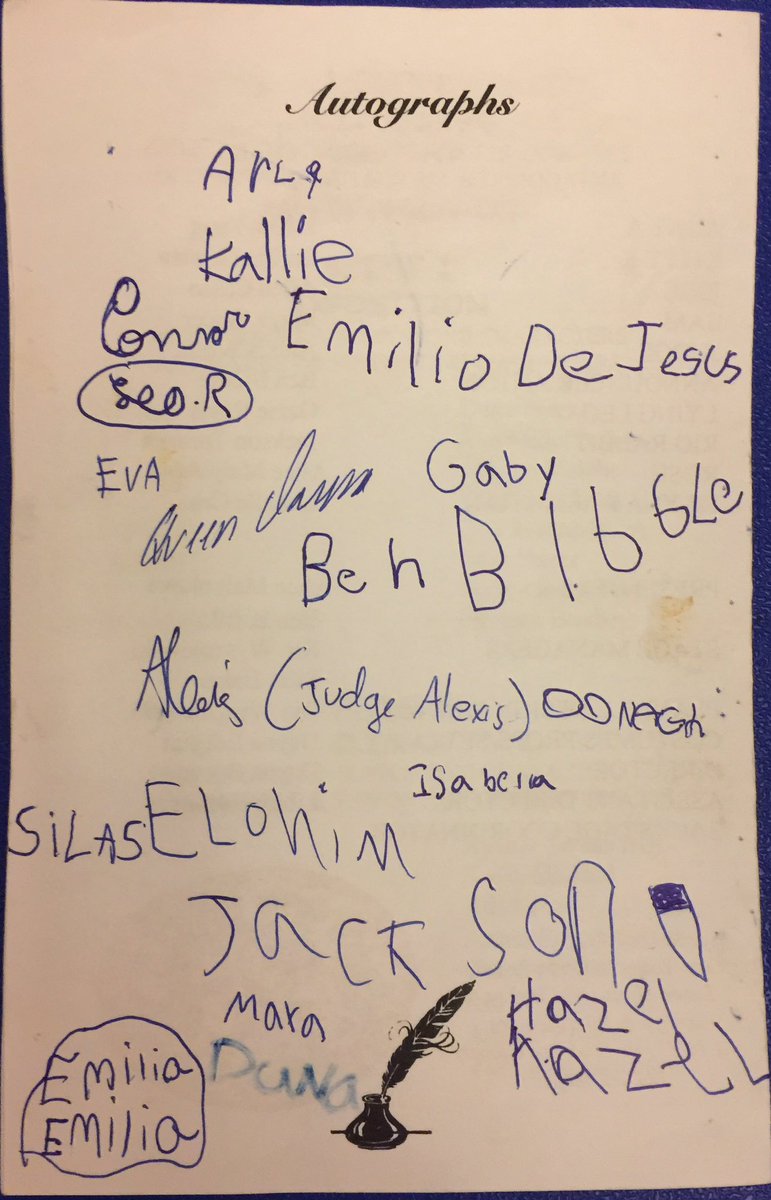 Autographs
Arla
Kallie
Connor Emilio De Jesus
Leo.R
EVA
Gaby
Queen
Ben Bibble
Alexis (Judge Alexis) OONAGH
Isabella
SiLAS ELOHiM
JACKSOn
Mara
Hazel
HazeL
Dana
Emilia
EMilia